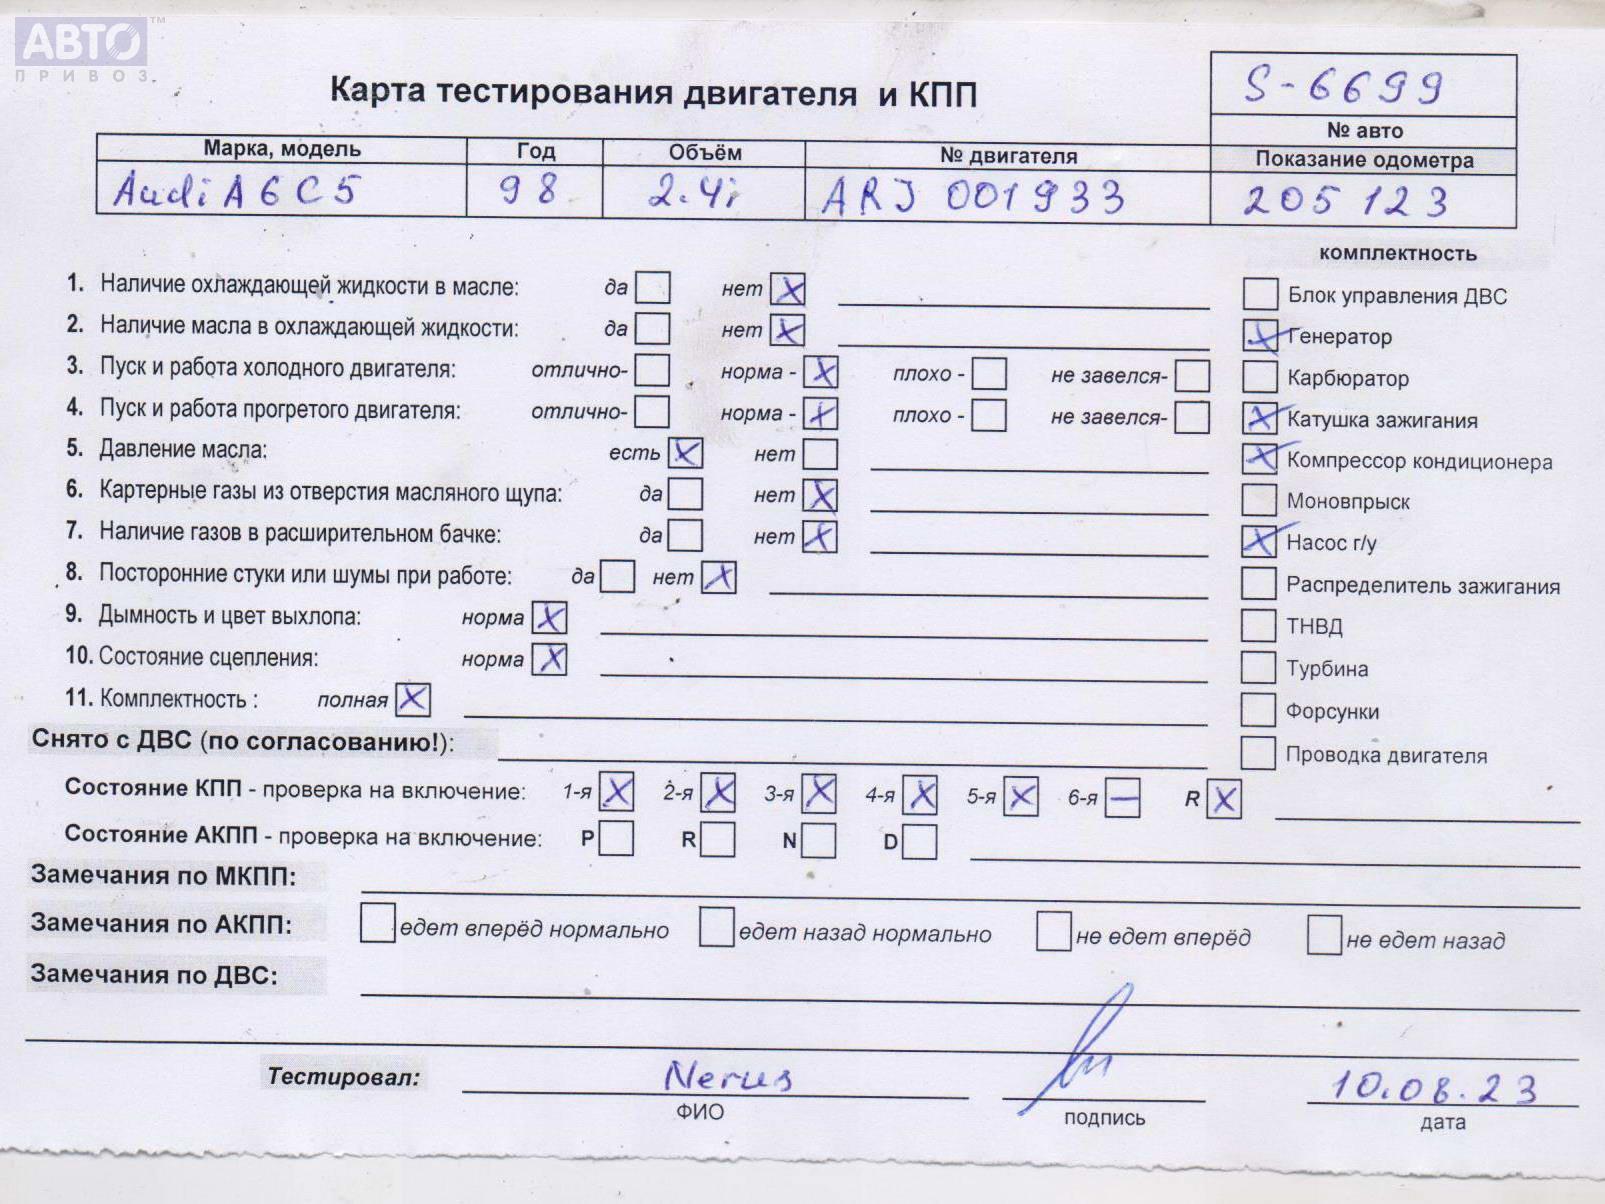 АВТО™
ПРИВОЗ
Карта тестирования двигателя и КПП
S-6699
№ авто
Марка, модель Год Объём № двигателя Показание одометра
Audi A6C5 98 2.4i ARJ 001933 205 123
комплектность
1. Наличие охлаждающей жидкости в масле: да нет X
Блок управления ДВС
2. Наличие масла в охлаждающей жидкости: да нет X
X Генератор
3. Пуск и работа холодного двигателя: отлично- норма - X плохо - не завелся-
Карбюратор
4. Пуск и работа прогретого двигателя: отлично- норма - X плохо - не завелся-
X Катушка зажигания
5. Давление масла: есть X нет
X Компрессор кондиционера
6. Картерные газы из отверстия масляного щупа: да нет X
Моновпрыск
7. Наличие газов в расширительном бачке: да нет X
X Насос г/у
8. Посторонние стуки или шумы при работе: да нет X
Распределитель зажигания
9. Дымность и цвет выхлопа: норма X
ТНВД
10. Состояние сцепления: норма X
Турбина
11. Комплектность : полная X
Форсунки
Снято с ДВС (по согласованию!):
Проводка двигателя
Состояние КПП - проверка на включение: 1-я X 2-я X 3-я X 4-я X 5-я X 6-я — R X
Состояние АКПП - проверка на включение: P R N D
Замечания по МКПП:
Замечания по АКПП: едет вперёд нормально едет назад нормально не едет вперёд не едет назад
Замечания по ДВС:
Тестировал: Nerus 10.08.23
ФИО подпись дата